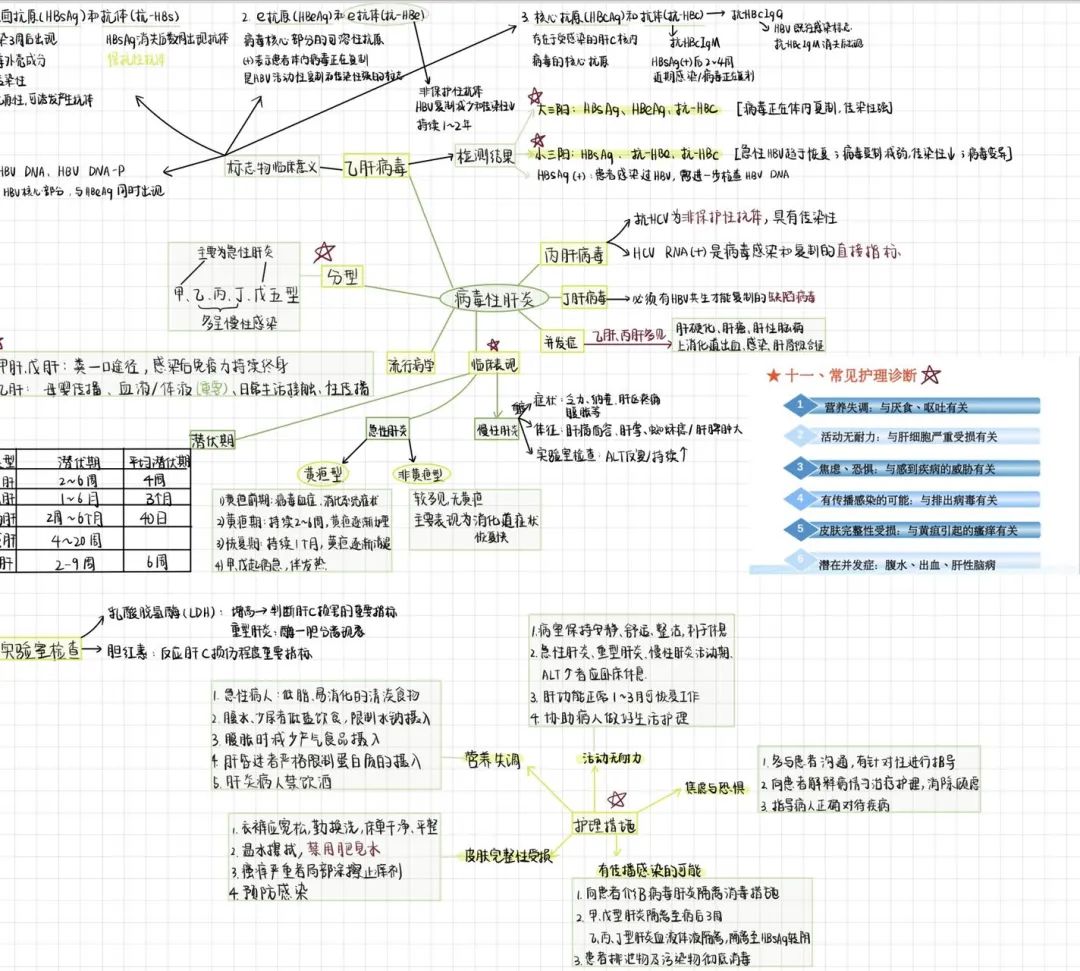 面抗原(HBsAg)和抗体(抗-HBs)
染3周后出现
HBsAg消失后数周出现抗体
毒外壳成分
保护性抗体
染性
抗原性,可诱发产生抗体
2. e抗原(HBeAg)和e抗体(抗-HBe)
病毒核心部分的可溶性抗原
(+)表示患者体内病毒正在复制
是HBV活动性复制和传染性强的标志
非保护性抗体
HBV复制减少和传染性↓
持续1~2年
3. 核心抗原(HBcAg)和抗体(抗-HBc)→抗HBcIgG
存在于受感染的肝C核内
病毒的核心抗原
抗HBcIgM
HBsAg(+)后2~4周
近期感染/病毒正在复制
HBV既往感染标志
抗HBcIgM消失后出现
HBV DNA、HBV DNA-P
HBV核心部分,与HBeAg同时出现
标志物临床意义
乙肝病毒
检测结果
大三阳:HBsAg、HBeAg、抗-HBc [病毒正在体内复制,传染性强]
小三阳:HBsAg、抗-HBe、抗-HBc [急性HBV趋于恢复;病毒复制减弱,传染性↓;病毒变异]
HBsAg(+):患者感染过HBV,需进一步检查HBV DNA
主要为急性肝炎
甲、乙、丙、丁、戊五型
多呈慢性感染
分型
病毒性肝炎
丙肝病毒
抗HCV为非保护性抗体,具有传染性
HCV RNA(+)是病毒感染和复制的直接指标
丁肝病毒
必须有HBV共生才能复制的缺陷病毒
并发症
乙肝、丙肝多见
肝硬化、肝癌、肝性脑病
上消化道出血、感染、肝肾综合征
甲肝、戊肝:粪—口途径,感染后免疫力持续终身
乙肝:母婴传播、血液/体液(重要)、日常生活接触、性传播
流行病学
临床表现
潜伏期
型 潜伏期 平均潜伏期
肝 2~6周 4周
肝 1~6月 3个月
肝 2周~6个月 40日
肝 4~20周
肝 2-9周 6周
急性肝炎
黄疸型
非黄疸型
1)黄疸前期:病毒血症、消化系统症状
2)黄疸期:持续2~6周,黄疸逐渐加深
3)恢复期:持续1个月,黄疸逐渐消退
4)甲、戊起病急,伴发热
较多见,无黄疸
主要表现为消化道症状
恢复快
慢性肝炎
症状:乏力、纳差、肝区疼痛
腹胀等
体征:肝病面容、肝掌、蜘蛛痣/肝脾肿大
实验室检查:ALT反复/持续↑
十一、常见护理诊断
1 营养失调:与厌食、呕吐有关
2 活动无耐力:与肝细胞严重受损有关
3 焦虑、恐惧:与感到疾病的威胁有关
4 有传播感染的可能:与排出病毒有关
5 皮肤完整性受损:与黄疸引起的瘙痒有关
6 潜在并发症:腹水、出血、肝性脑病
实验室检查
乳酸脱氢酶(LDH):增高→判断肝C损害的重要指标
重型肝炎:酶—胆分离现象
胆红素:反应肝C损伤程度重要指标
1. 病室保持安静、舒适、整洁,利于休息
2. 急性肝炎、重型肝炎、慢性肝炎活动期、
ALT↑者应卧床休息
3. 肝功能正常1~3月可恢复工作
4. 协助病人做好生活护理
1. 急性病人:低脂、易消化的清淡食物
2. 腹水、少尿者低盐饮食,限制水钠摄入
3. 腹胀时减少产气食品摄入
4. 肝昏迷者严格限制蛋白质的摄入
5. 肝炎病人禁饮酒
营养失调
活动无耐力
焦虑与恐惧
1. 多与患者沟通,有针对性进行指导
2. 向患者解释病情与治疗护理,消除顾虑
3. 指导病人正确对待疾病
护理措施
1. 衣裤应宽松,勤换洗,床单干净、平整
2. 温水擦拭,禁用肥皂水
3. 瘙痒严重者局部涂擦止痒剂
4. 预防感染
皮肤完整性受损
有传播感染的可能
1. 向患者介绍病毒肝炎隔离消毒措施
2. 甲、戊型肝炎隔离至病后3周
乙、丙、丁型肝炎血液体液隔离,隔离至HBsAg转阴
3. 患者排泄物及污染物彻底消毒